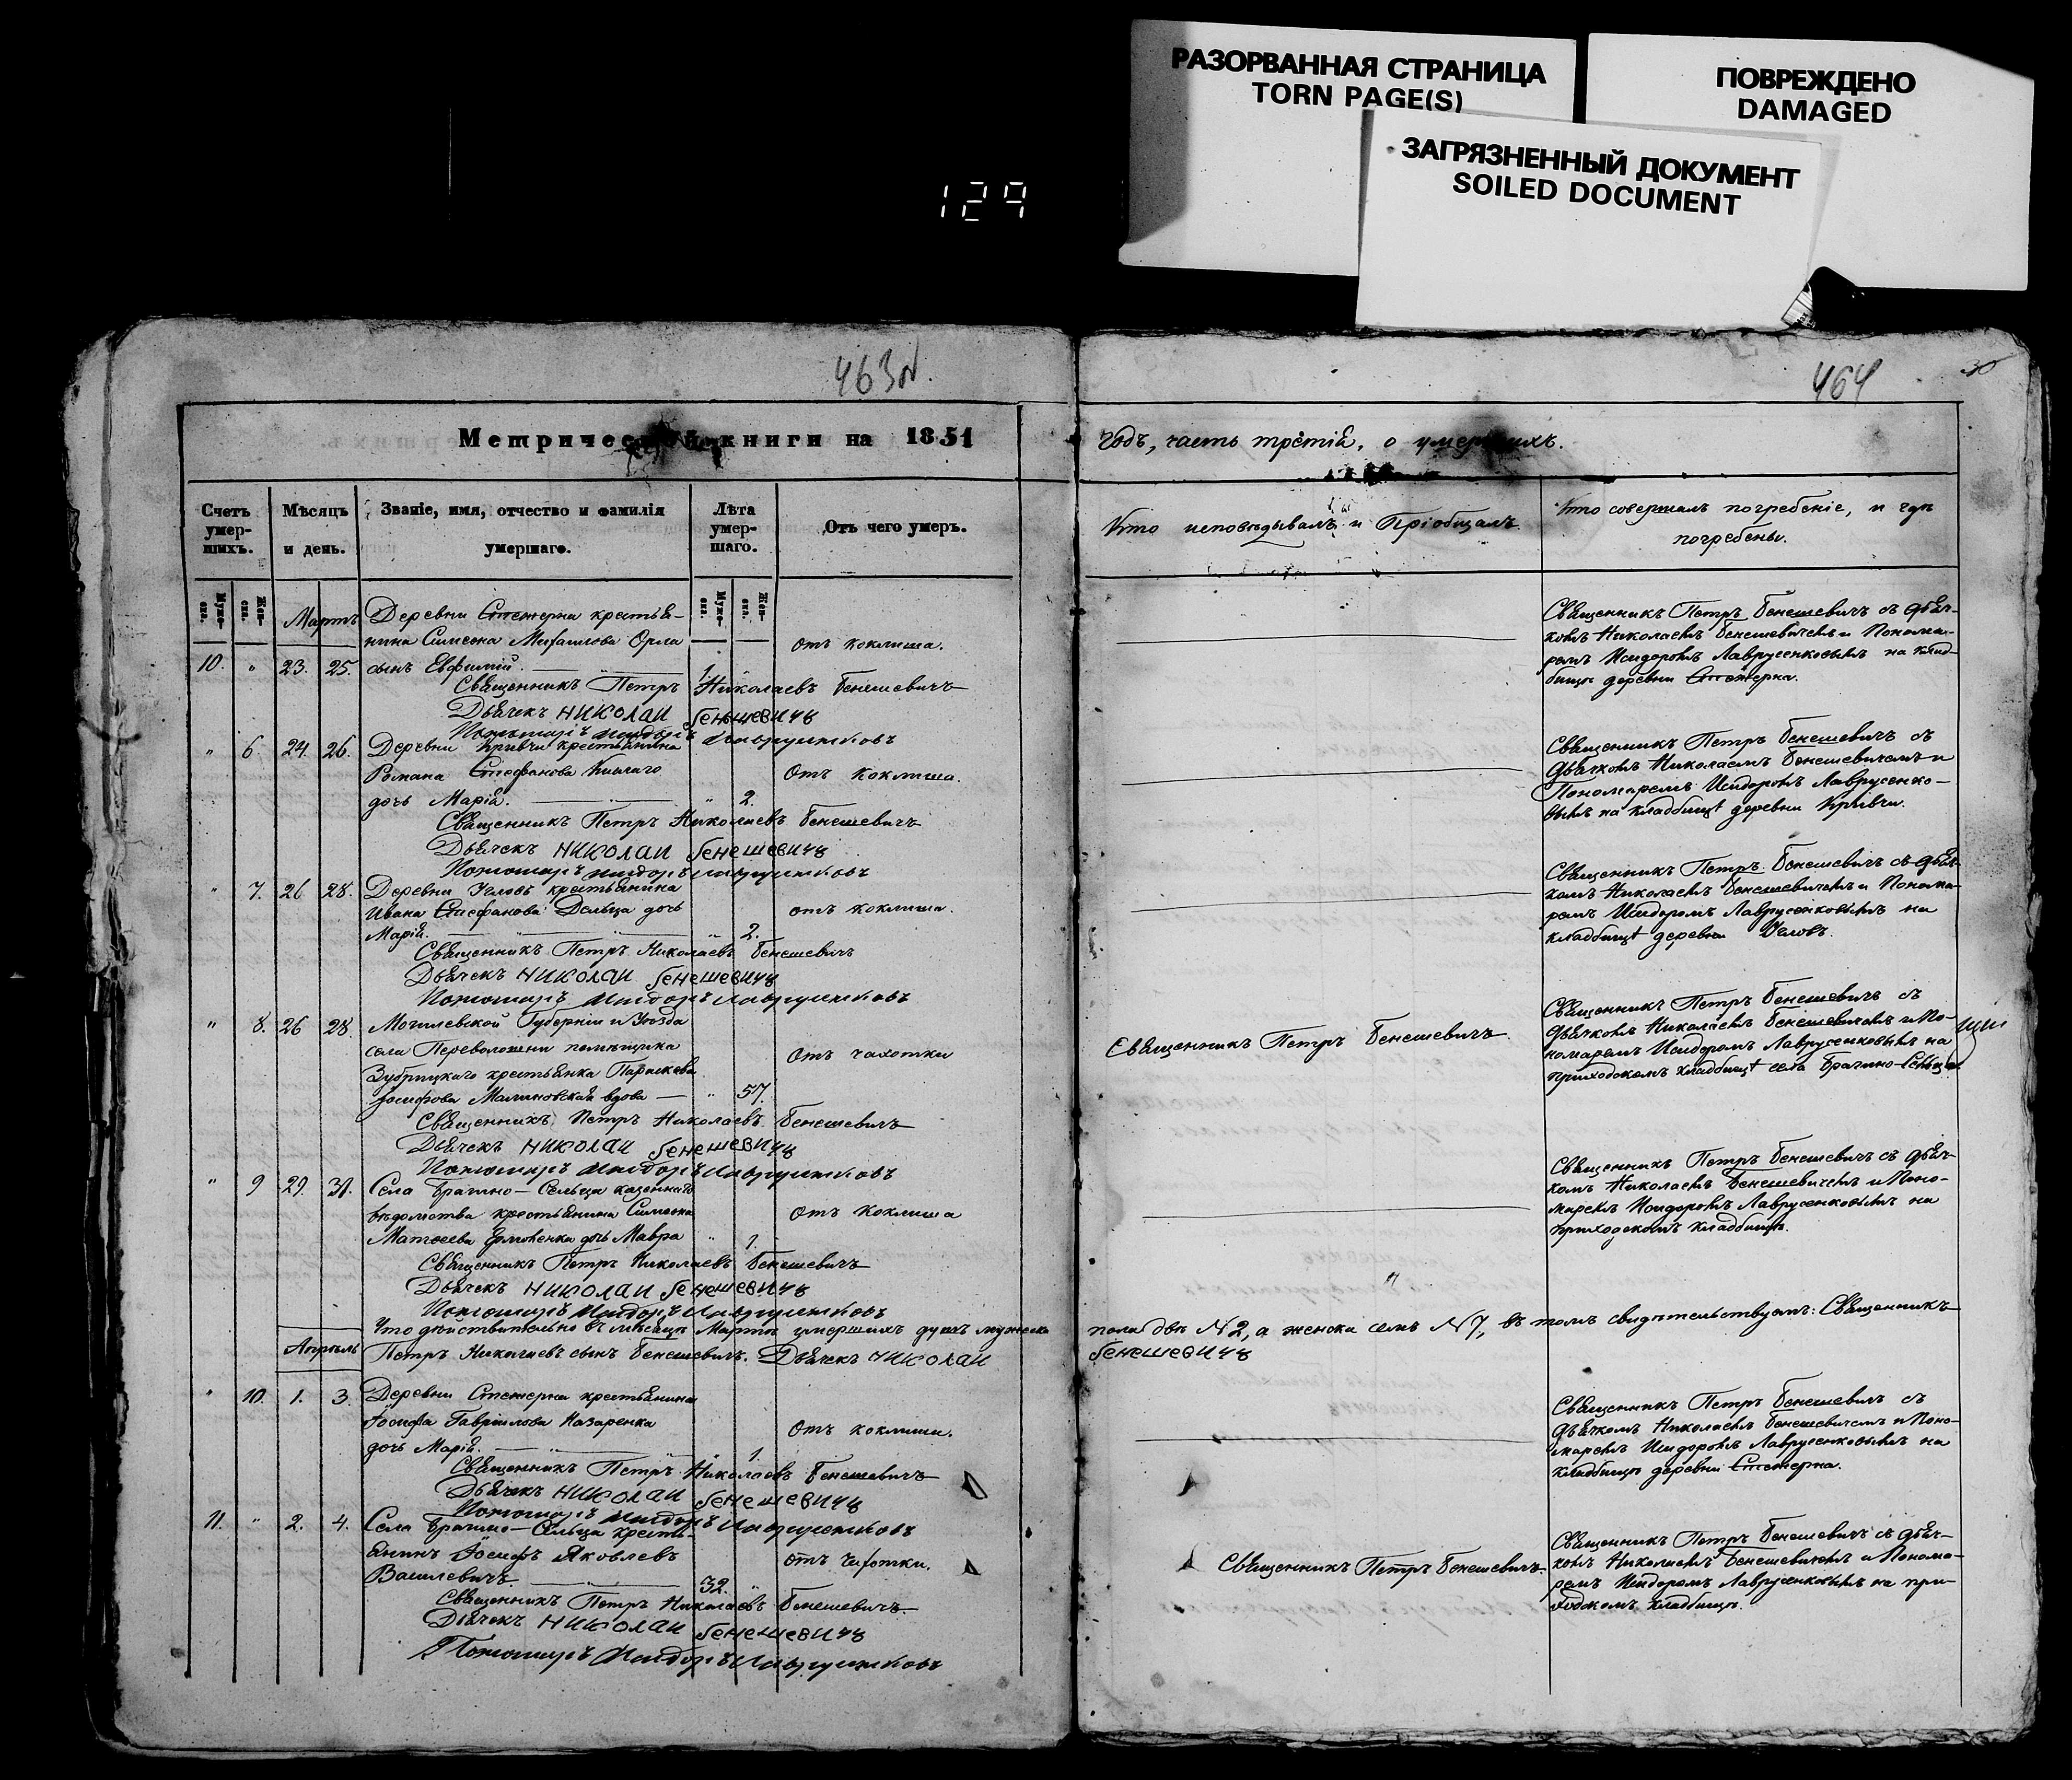 РАЗОРВАННАЯ СТРАНИЦА
TORN PAGE(S)
ПОВРЕЖДЕНО
DAMAGED
ЗАГРЯЗНЕННЫЙ ДОКУМЕНТ
SOILED DOCUMENT
129
463
464
30
книги на 1851
годъ, часть третія, о
Счетъ умер-шихъ.
Мѣсяцъ и день.
Званіе, имя, отчество и фамилія умершаго.
Лѣта умер-шаго.
Отъ чего умеръ.
Кто исповѣдывалъ и Пріобщалъ.
Кто совершалъ погребеніе, и гдѣ
погребены.
Муже-ска.
Жен-ска.
Муже-ска.
Жен-ска.
Мартъ
Деревни Стежерна крестья-
нина Симеона Михайлова Орла
отъ коклюша.
10. " 23. 25. сынъ Евфимій. 1. "
Священникъ Петръ Николаевъ Бенешевичъ
Дьячекъ Николай Бенешевичъ
Священникъ Петръ Бенешевичъ съ дьяч-
комъ Николаемъ Бенешевичемъ и Понома-
ремъ Исидоромъ Лаврусенковымъ на клад-
бищѣ деревни Стежерна.
" 6. 24. 26. Деревни Кривчи крестьянина
Романа Стефанова
Отъ коклюша.
дочь Марія. " 2.
Священникъ Петръ Николаевъ Бенешевичъ
Дьячекъ Николай Бенешевичъ
Священникъ Петръ Бенешевичъ съ
дьячкомъ Николаемъ Бенешевичемъ и
Пономаремъ Исидоромъ Лаврусенко-
вымъ на кладбищѣ деревни Кривчи.
" 7. 26 28. Деревни Угловъ крестьянина
Ивана Стефанова дочь
отъ коклюша.
Марія. " 2.
Священникъ Петръ Николаевъ Бенешевичъ
Дьячекъ Николай Бенешевичъ
Священникъ Петръ Бенешевичъ съ дьяч-
комъ Николаемъ Бенешевичемъ и Понома-
ремъ Исидоромъ Лаврусенковымъ на
кладбищѣ деревни Угловъ.
" 8. 26 28 Могилевской Губерніи и Уѣзда
села Переволочни помѣщика
Отъ чахотки
Зубрицкаго крестьянка Параскева
Іосифова Малиновская вдова " 57.
Священникъ Петръ Николаевъ Бенешевичъ
Дьячекъ Николай Бенешевичъ
Священникъ Петръ Бенешевичъ
Священникъ Петръ Бенешевичъ съ
дьячкомъ Николаемъ Бенешевичемъ и По-
номаремъ Исидоромъ Лаврусенковымъ на
приходскомъ кладбищѣ села
" 9 29. 31. Села казеннаго
вѣдомства крестьянина Симеона
Отъ коклюша
Матвеева дочь Мавра " 1.
Священникъ Петръ Николаевъ Бенешевичъ
Дьячекъ Николай Бенешевичъ
Священникъ Петръ Бенешевичъ съ дьяч-
комъ Николаемъ Бенешевичемъ и Поно-
маремъ Исидоромъ Лаврусенковымъ на
приходскомъ кладбищѣ.
Что дѣйствительно въ мѣсяцѣ Мартѣ умершихъ душъ мужеска
пола двѣ №2, а женска семь №7, въ томъ свидѣтельствуемъ: Священникъ
Апрѣль
Петръ Николаевъ сынъ Бенешевичъ. Дьячекъ Николай
Бенешевичъ
" 10. 1. 3. Деревни Стежерна крестьянина
Іосифа Гаврилова Назаренка
Отъ коклюша.
дочь Марія. " 1.
Священникъ Петръ Николаевъ Бенешевичъ
Дьячекъ Николай Бенешевичъ
Священникъ Петръ Бенешевичъ съ
дьячкомъ Николаемъ Бенешевичемъ и Поно-
маремъ Исидоромъ Лаврусенковымъ на
кладбищѣ деревни Стежерна.
11. " 2. 4. Села крестья-
янинъ Іосифъ Яковлевъ
отъ чахотки.
Василевичъ. 32. "
Священникъ Петръ Николаевъ Бенешевичъ
Дьячекъ Николай Бенешевичъ
Священникъ Петръ Бенешевичъ
Священникъ Петръ Бенешевичъ съ дьяч-
комъ Николаемъ Бенешевичемъ и Понома-
ремъ Исидоромъ Лаврусенковымъ на при-
ходскомъ кладбищѣ.